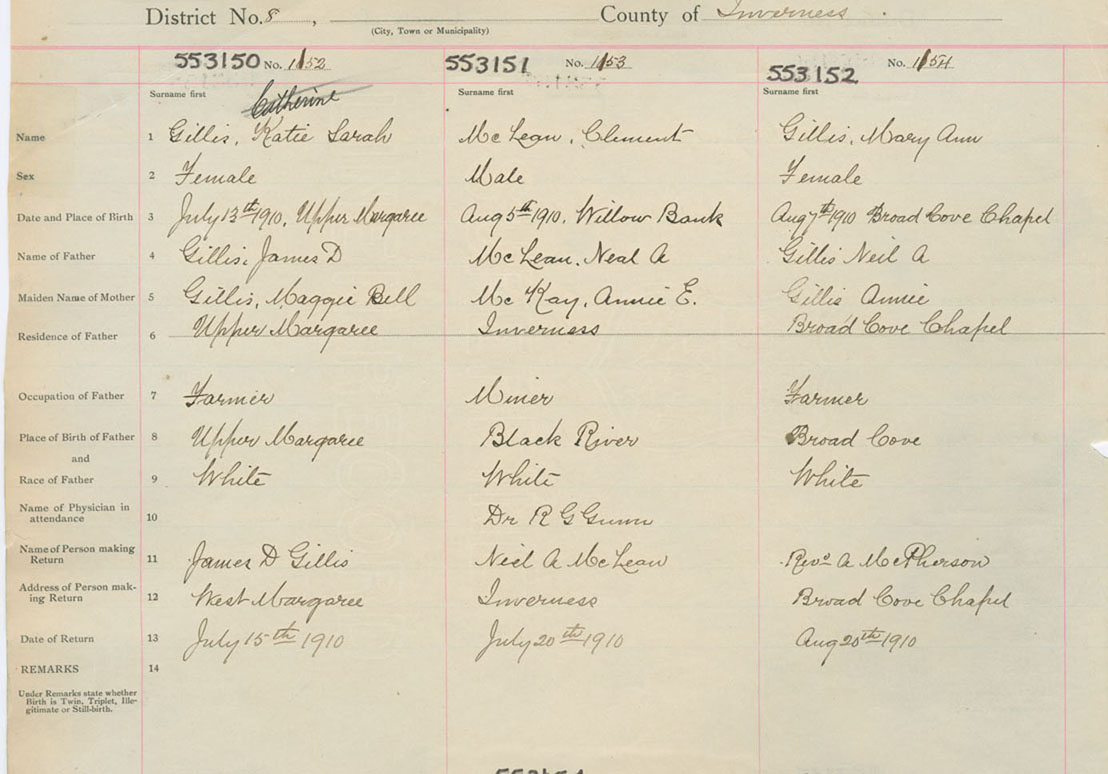 District No. 8, County of Inverness.
(City, Town or Municipality)
553150 No. 1152 553151 No. 1153 553152 No. 1154
Surname first Catherine Surname first Surname first
Name 1 Gillis, Katie Sarah Mc Lean, Clement Gillis, Mary Ann
Sex 2 Female Male Female
Date and Place of Birth 3 July 13th 1910, Upper Margaree Aug 5th 1910, Willow Bank Aug 7th 1910 Broad Cove Chapel
Name of Father 4 Gillis, James D Mc Lean, Neal A Gillis Neil A
Maiden Name of Mother 5 Gillis, Maggie Bell Mc Kay, Annie E. Gillis Annie
Residence of Father 6 Upper Margaree Inverness Broad Cove Chapel
Occupation of Father 7 Farmer Miner Farmer
Place of Birth of Father 8 Upper Margaree Black River Broad Cove
and
Race of Father 9 White White White
Name of Physician in
attendance 10 Dr R G Gunn
Name of Person making
Return 11 James D Gillis Neil A McLean Revd A McPherson
Address of Person mak-
ing Return 12 West Margaree Inverness Broad Cove Chapel
Date of Return 13 July 15th 1910 July 20th 1910 Aug 20th 1910
REMARKS 14
Under Remarks state whether
Birth is Twin, Triplet, Ille-
gitimate or Still-birth.